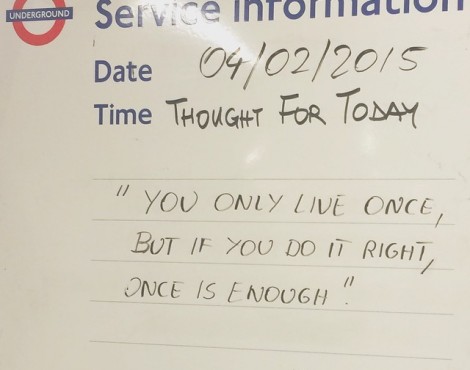 UNDERGROUND
Service Information
Date 04/02/2015
Time THOUGHT FOR TODAY
" YOU ONLY LIVE ONCE,
BUT IF YOU DO IT RIGHT,
ONCE IS ENOUGH ".